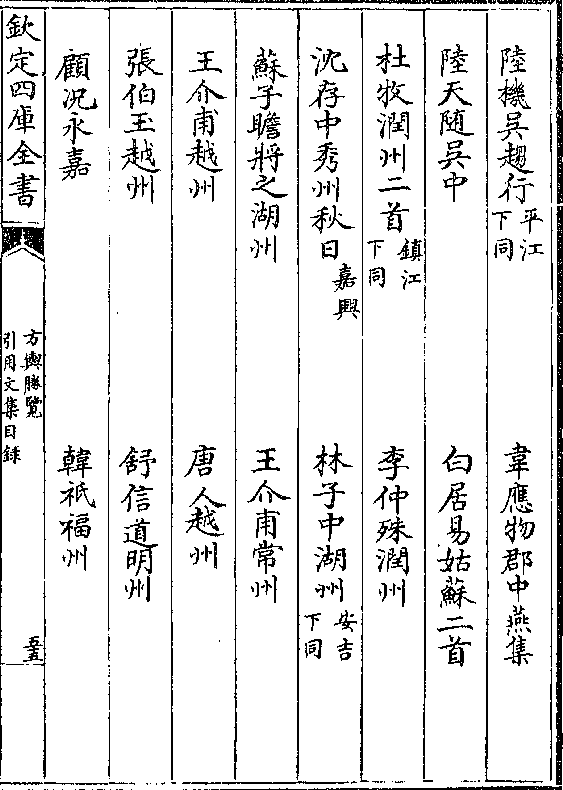 陸機吳趨行平江下同　韋應物郡中燕集
陸天随吳中　白居易姑蘇二首
杜牧潤州二首鎮江下同　李仲殊潤州
沈存中秀州秋日嘉興　林子中湖州安吉下同
蘇子瞻將之湖州　王介甫常州
王介甫越州　唐人越州
張伯玉越州　舒信道明州
顧况永嘉　韓祇福州
欽定四庫全書　方輿勝覽引用文集目錄　五五